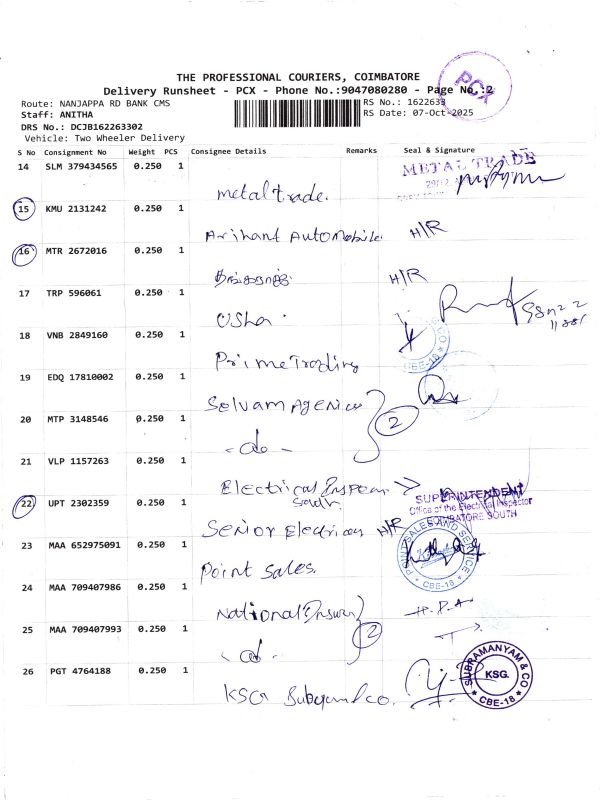 PCX
THE PROFESSIONAL COURIERS, COIMBATORE
Delivery Runsheet - PCX - Phone No.:9047080280 - Page No.:2
Route: NANJAPPA RD BANK CMS
RS No.: 1622633
Staff: ANITHA
RS Date: 07-Oct-2025
DRS No.: DCJB162263302
Vehicle: Two Wheeler Delivery
S No Consignment No Weight PCS Consignee Details Remarks Seal & Signature
14 SLM 379434565 0.250 1
METAL TRADE
metal trade.
15 KMU 2131242 0.250 1
Arihant Automobile. H/R
16 MTR 2672016 0.250 1
H/R
17 TRP 596061 0.250 1
Usha.
18 VNB 2849160 0.250 1
CBE-18
Prime Trading
19 EDQ 17810002 0.250 1
Selvam Agencies
2
20 MTP 3148546 0.250 1
- do -
21 VLP 1157263 0.250 1
Electrical Inspear
South
SUPERINTENDENT
Office of the Electrical Inspector
COIMBATORE SOUTH
22 UPT 2302359 0.250 1
Senior Electrical H/R
23 MAA 652975091 0.250 1
POINT SALES AND SERVICE
CBE-18
Point Sales.
24 MAA 709407986 0.250 1
National Insuru
25 MAA 709407993 0.250 1
2
- do -
26 PGT 4764188 0.250 1
SUBRAMANYAM & CO
KSG.
CBE-18
KSG Subyam & co.